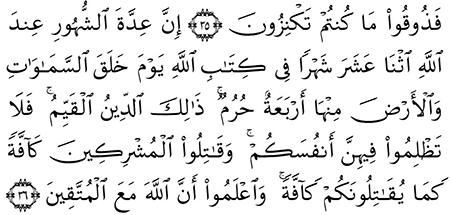 فَذُوقُوا۟ مَا كُنتُمْ تَكْنِزُونَ ﴿٣٥﴾ إِنَّ عِدَّةَ ٱلشُّهُورِ عِندَ
ٱللَّهِ ٱثْنَا عَشَرَ شَهْرًا فِى كِتَـٰبِ ٱللَّهِ يَوْمَ خَلَقَ ٱلسَّمَـٰوَٰتِ
وَٱلْأَرْضَ مِنْهَآ أَرْبَعَةٌ حُرُمٌ ۚ ذَٰلِكَ ٱلدِّينُ ٱلْقَيِّمُ ۚ فَلَا
تَظْلِمُوا۟ فِيهِنَّ أَنفُسَكُمْ ۚ وَقَـٰتِلُوا۟ ٱلْمُشْرِكِينَ كَآفَّةً
كَمَا يُقَـٰتِلُونَكُمْ كَآفَّةً ۚ وَٱعْلَمُوٓا۟ أَنَّ ٱللَّهَ مَعَ ٱلْمُتَّقِينَ ﴿٣٦﴾